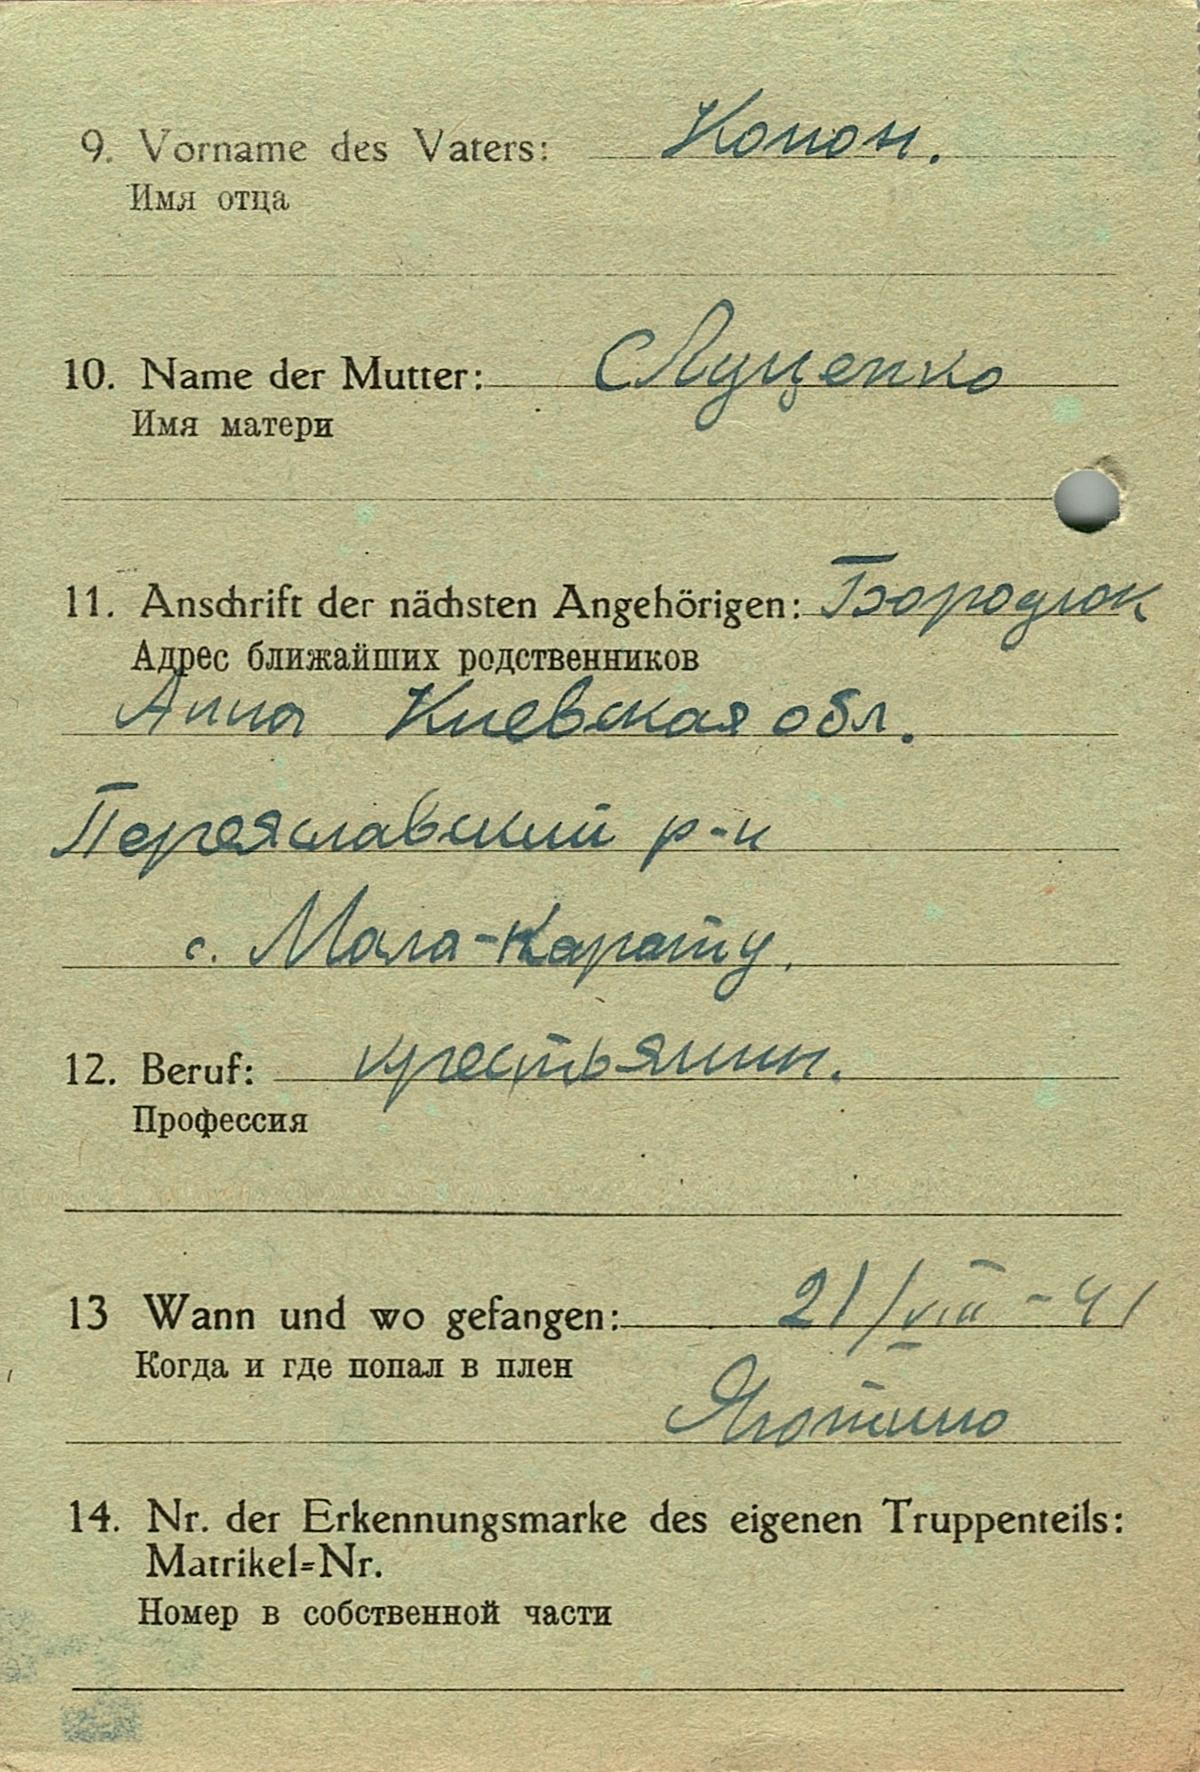 9. Vorname des Vaters: Конон.
Имя отца
10. Name der Mutter: Луценко
Имя матери
11. Anschrift der nächsten Angehörigen: Бородюк
Адрес ближайших родственников
Анна Киевская обл.
Переяславский р-н
с. Мала-Карату.
12. Beruf: крестьянин.
Профессия
13 Wann und wo gefangen: 21/VIII-41
Когда и где попал в плен
Яготино
14. Nr. der Erkennungsmarke des eigenen Truppenteils:
Matrikel=Nr.
Номер в собственной части